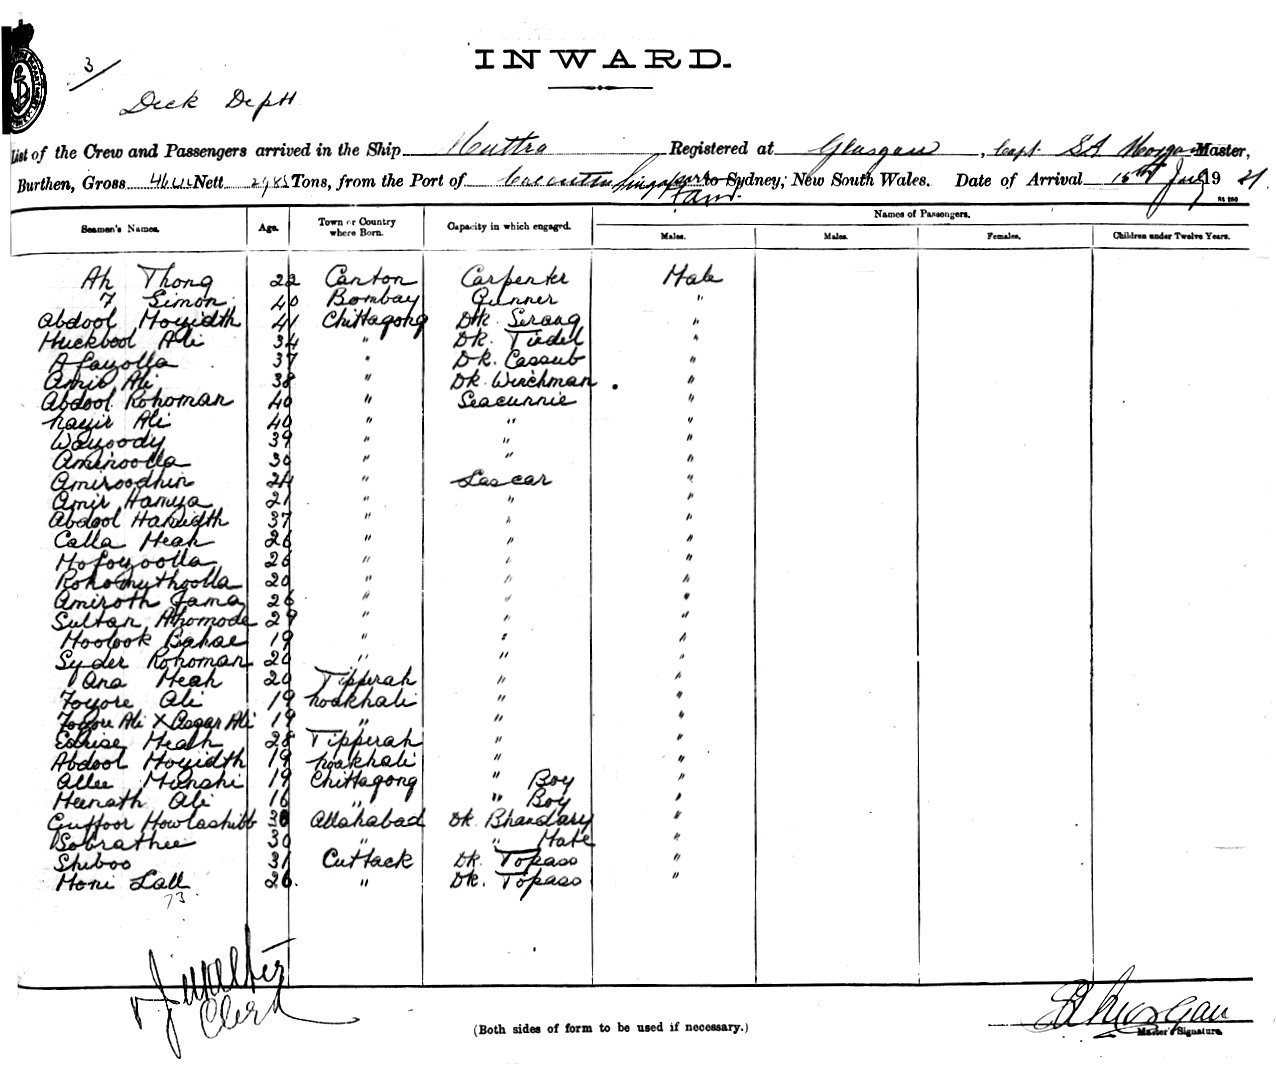 3/
INWARD.
Deck Dept
List of the Crew and Passengers arrived in the Ship Muttra Registered at Glasgow, Capt. S A Morgan Master,
Burthen, Gross 4644 Nett 2985 Tons, from the Port of Calcutta Singapore to Sydney, New South Wales. Date of Arrival 15th July 19 21.
Names of Passengers.
Seamen's Names. Age. Town or Country where Born. Capacity in which engaged. Males. Males. Females. Children under Twelve Years.
Ah Thong 22 Canton Carpenter Male
F Simon 40 Bombay Gunner "
Abdool Moyidth 41 Chittagong Dk. Serang "
Muckbool Ali 34 " Dk. Tindel "
Afayolla 37 " Dk. Cassub "
Amir Ali 38 " Dk. Winchman "
Abdool Rohoman 40 " Seacunnie "
Nayir Ali 40 " " "
Wayoody 39 " " "
Aminoolla 30 " " "
Amiroodhin 24 " Lascar "
Amir Hamya 21 " " "
Abdool Hakidth 37 " " "
Calla Meah 26 " " "
Mofoyoolla 26 " " "
Rohomuthoolla 20 " " "
Amiroth Jama 26 " " "
Sultan Ahomode 29 " " "
Moolook Bahae 19 " " "
Syder Rohoman 20 " " "
Ana Meah 20 Tipperah " "
Foyore Ali 19 Noakhali " "
Foyore Ali X Asgar Ali 19 " " "
Edrise Meah 28 Tipperah " "
Abdool Moyidth 19 Noakhali " "
Allee Munshi 19 Chittagong " Boy "
Meenath Ali 16 " " Boy "
Guffoor Howlashibb 30 Allahabad Dk. Bhandary "
Sobrathee 30 " " Mate "
Shiboo 31 Cuttack Dk. Topass "
Moni Lall 26. " Dk. Topass "
73.
Clerk
S A Morgan
(Both sides of form to be used if necessary.) Master's Signature.